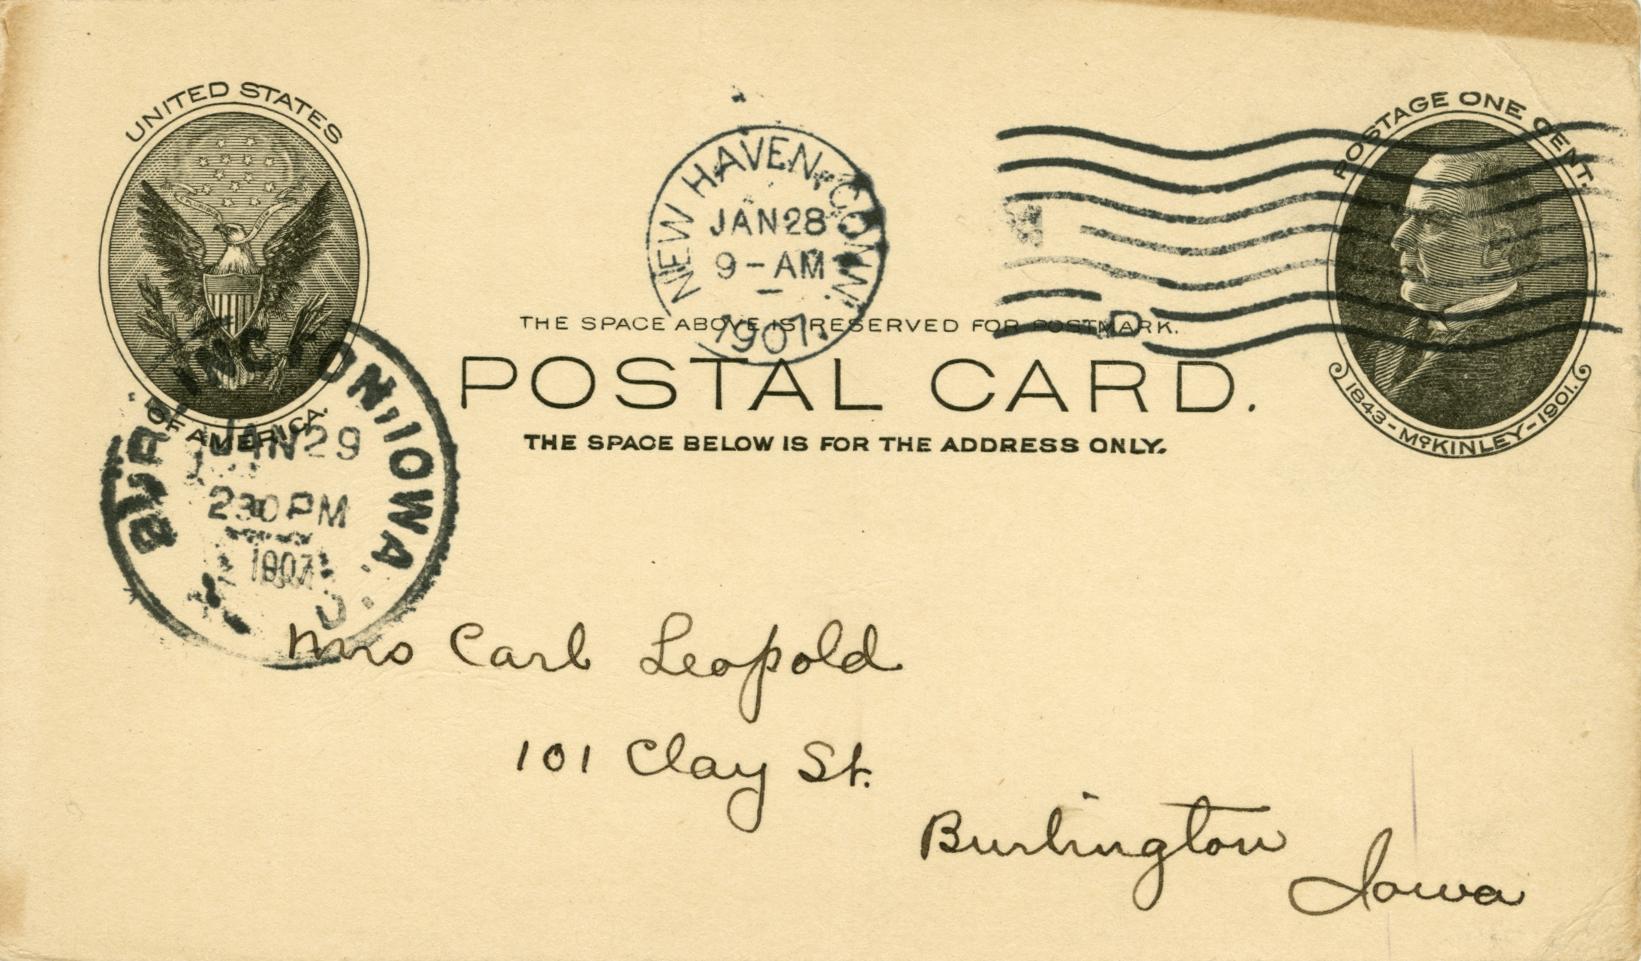 UNITED STATES
OF AMERICA.
NEW HAVEN, CONN.
JAN 28
9-AM
1907.
D
POSTAGE ONE CENT.
1843-McKINLEY-1901.
THE SPACE ABOVE IS RESERVED FOR POSTMARK.
POSTAL CARD.
THE SPACE BELOW IS FOR THE ADDRESS ONLY.
BURLINGTON, IOWA.
JAN 29
230 PM
1907
Mrs Carl Leopold
101 Clay St.
Burlington
Iowa